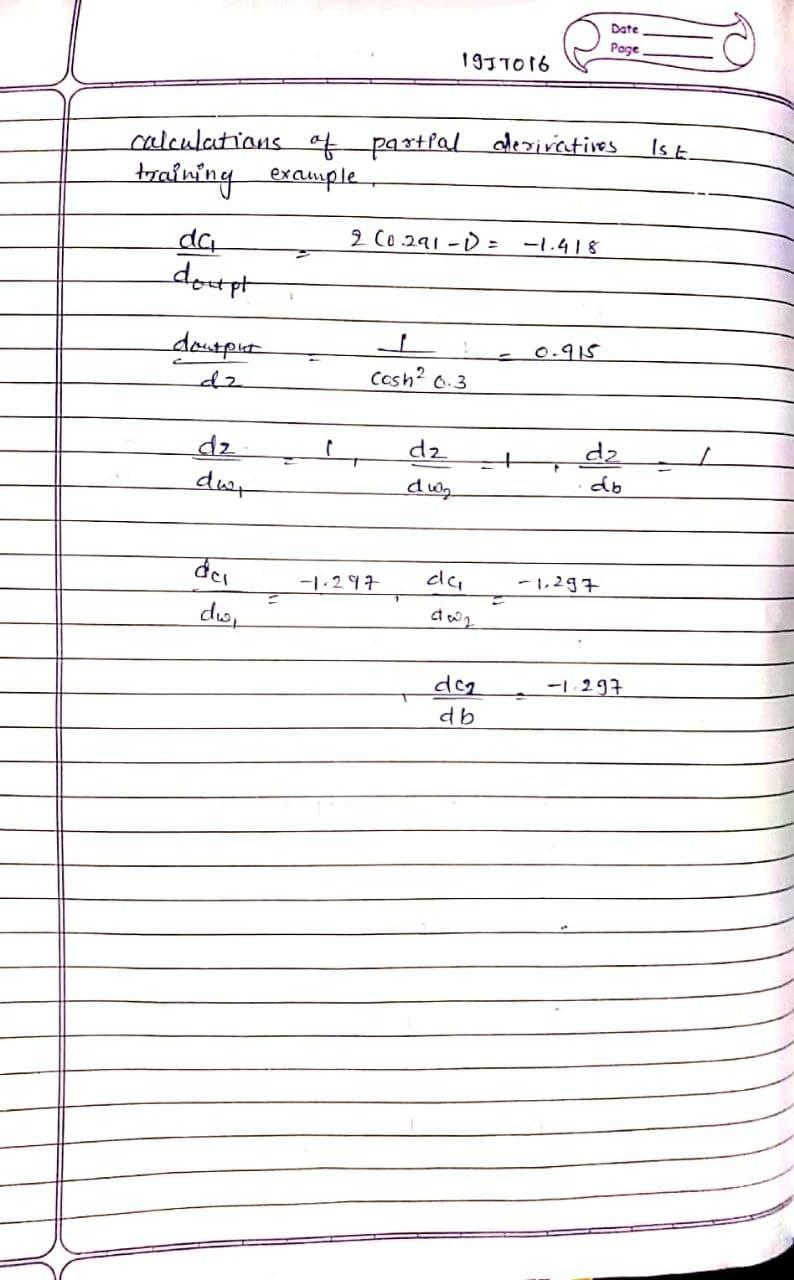 Date
Page
19IT016
calculations of partial derivatives 1st
training example.
dc1/doutpt = 2(0.291-1) = -1.418
doutput/dz = 1/cosh² 0.3 = 0.915
dz/dw1 = 1, dz/dw2 = 1, dz/db = 1
dc1/dw1 = -1.297, dc1/dw2 = -1.297
, dc2/db = -1.297